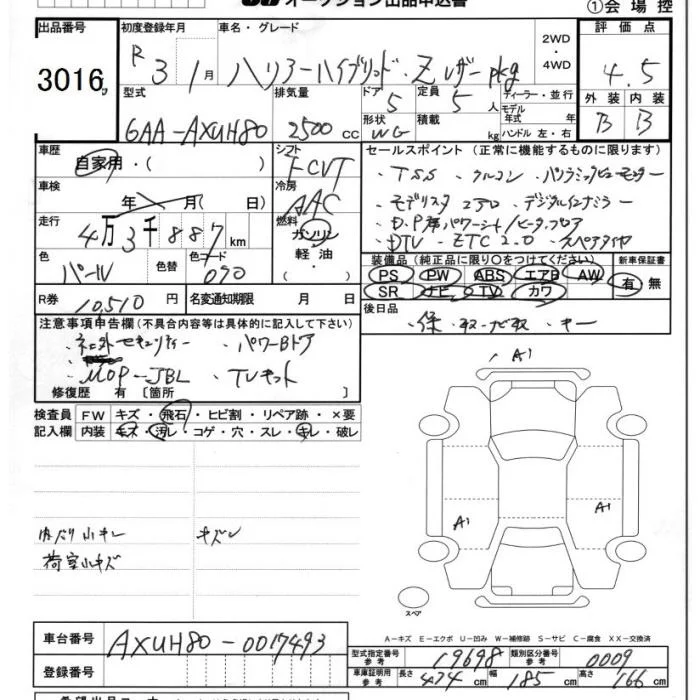 オークション出品申込書
①会場控
出品番号 初度登録年月 車名・グレード 2WD・4WD 評価点
3016 R3 1月 ハリアーハイブリッド・Zレザーpkg 4.5
型式 排気量 ドア 定員 ディーラー・並行 外装 内装
6AA-AXUH80 2500cc 5 5人 モデル年式 年 B B
形状 WG 積載 kg ハンドル 左・右
車歴 シフト セールスポイント (正常に機能するものに限ります)
自家用・( ) FCVT ・TSS ・クルコン ・パノラミックビューモニター
車検 年 月(日) 冷房 AAC ・モデリスタエアロ ・デジタルインナーミラー
走行 4万3千887km 燃料 ガソリン・軽油・( ) ・D.P席パワーシート/ヒータ
・DTV ・ETC2.0 ・スペアタイヤ
色 パール 色替 色コード 070
装備品 (純正品に限り○をつけてください) 新車保証書
PS PW ABS エアB AW 有 無
SR ナビ TV カワ
R券 10,510円 名変通知期限 月 日
後日品
・保・取・ナビ取・キー
注意事項申告欄 (不具合内容等は具体的に記入して下さい)
・社外セキュリティー ・パワーBドア
・MOP-JBL ・TVキット
修復歴 有 [箇所 ]
検査員記入欄 FW キズ・飛石・ヒビ割・リペア跡・×要
内装 キズ・汚レ・コゲ・穴・スレ・キレ・破レ
A1
A1
A1
内バリ小キレ キズレ
荷室小キズ
スペア
A-キズ E-エクボ U-凹み W-補修跡 S-サビ C-腐食 XX-交換済
車台番号 AXUH80-0017493
型式指定番号 参考 19698 類別区分番号 参考 0009
登録番号
車庫証明用 参考 長さ 474cm 幅 185cm 高さ 166cm